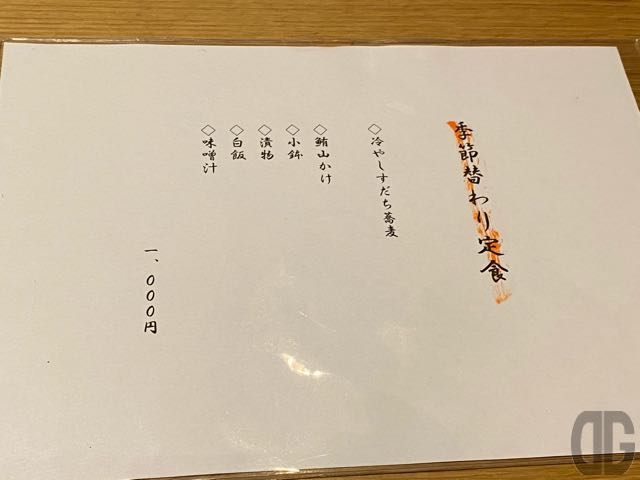 季節替わり定食
◇冷やしすだち蕎麦
◇鮪山かけ
◇小鉢
◇漬物
◇白飯
◇味噌汁
一、〇〇〇円
DG